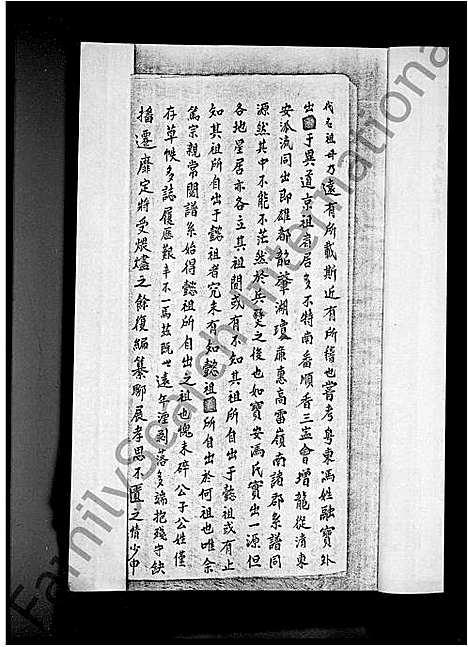 代名祖毋乃遠有所載斯近有所稽也嘗考粵東馮姓融寶外
出于異道京祖者居多不特南番順香三盆會增龍從清東
安派流同出即雄都韶肇湖瓊廉惠高雷嶺南諸郡系譜同
源然其中不能不茫然於兵燹之後也如寶安馮氏實出一源但
各地星居亦各立其祖間或有不知其祖所自出于懿祖或有止
知其祖所自出于懿祖者究未有知懿祖所自出於何祖也唯余
篤宗親常閱譜系始得懿祖所自出之祖也愧未碎公子公姓僅
存草帙多誌履歷艱辛不一焉玆既世遠年湮剥落多端抱殘守缺
播遷靡定將受煨燼之餘復編纂聊展孝思不匱之情少申
FamilySearch International